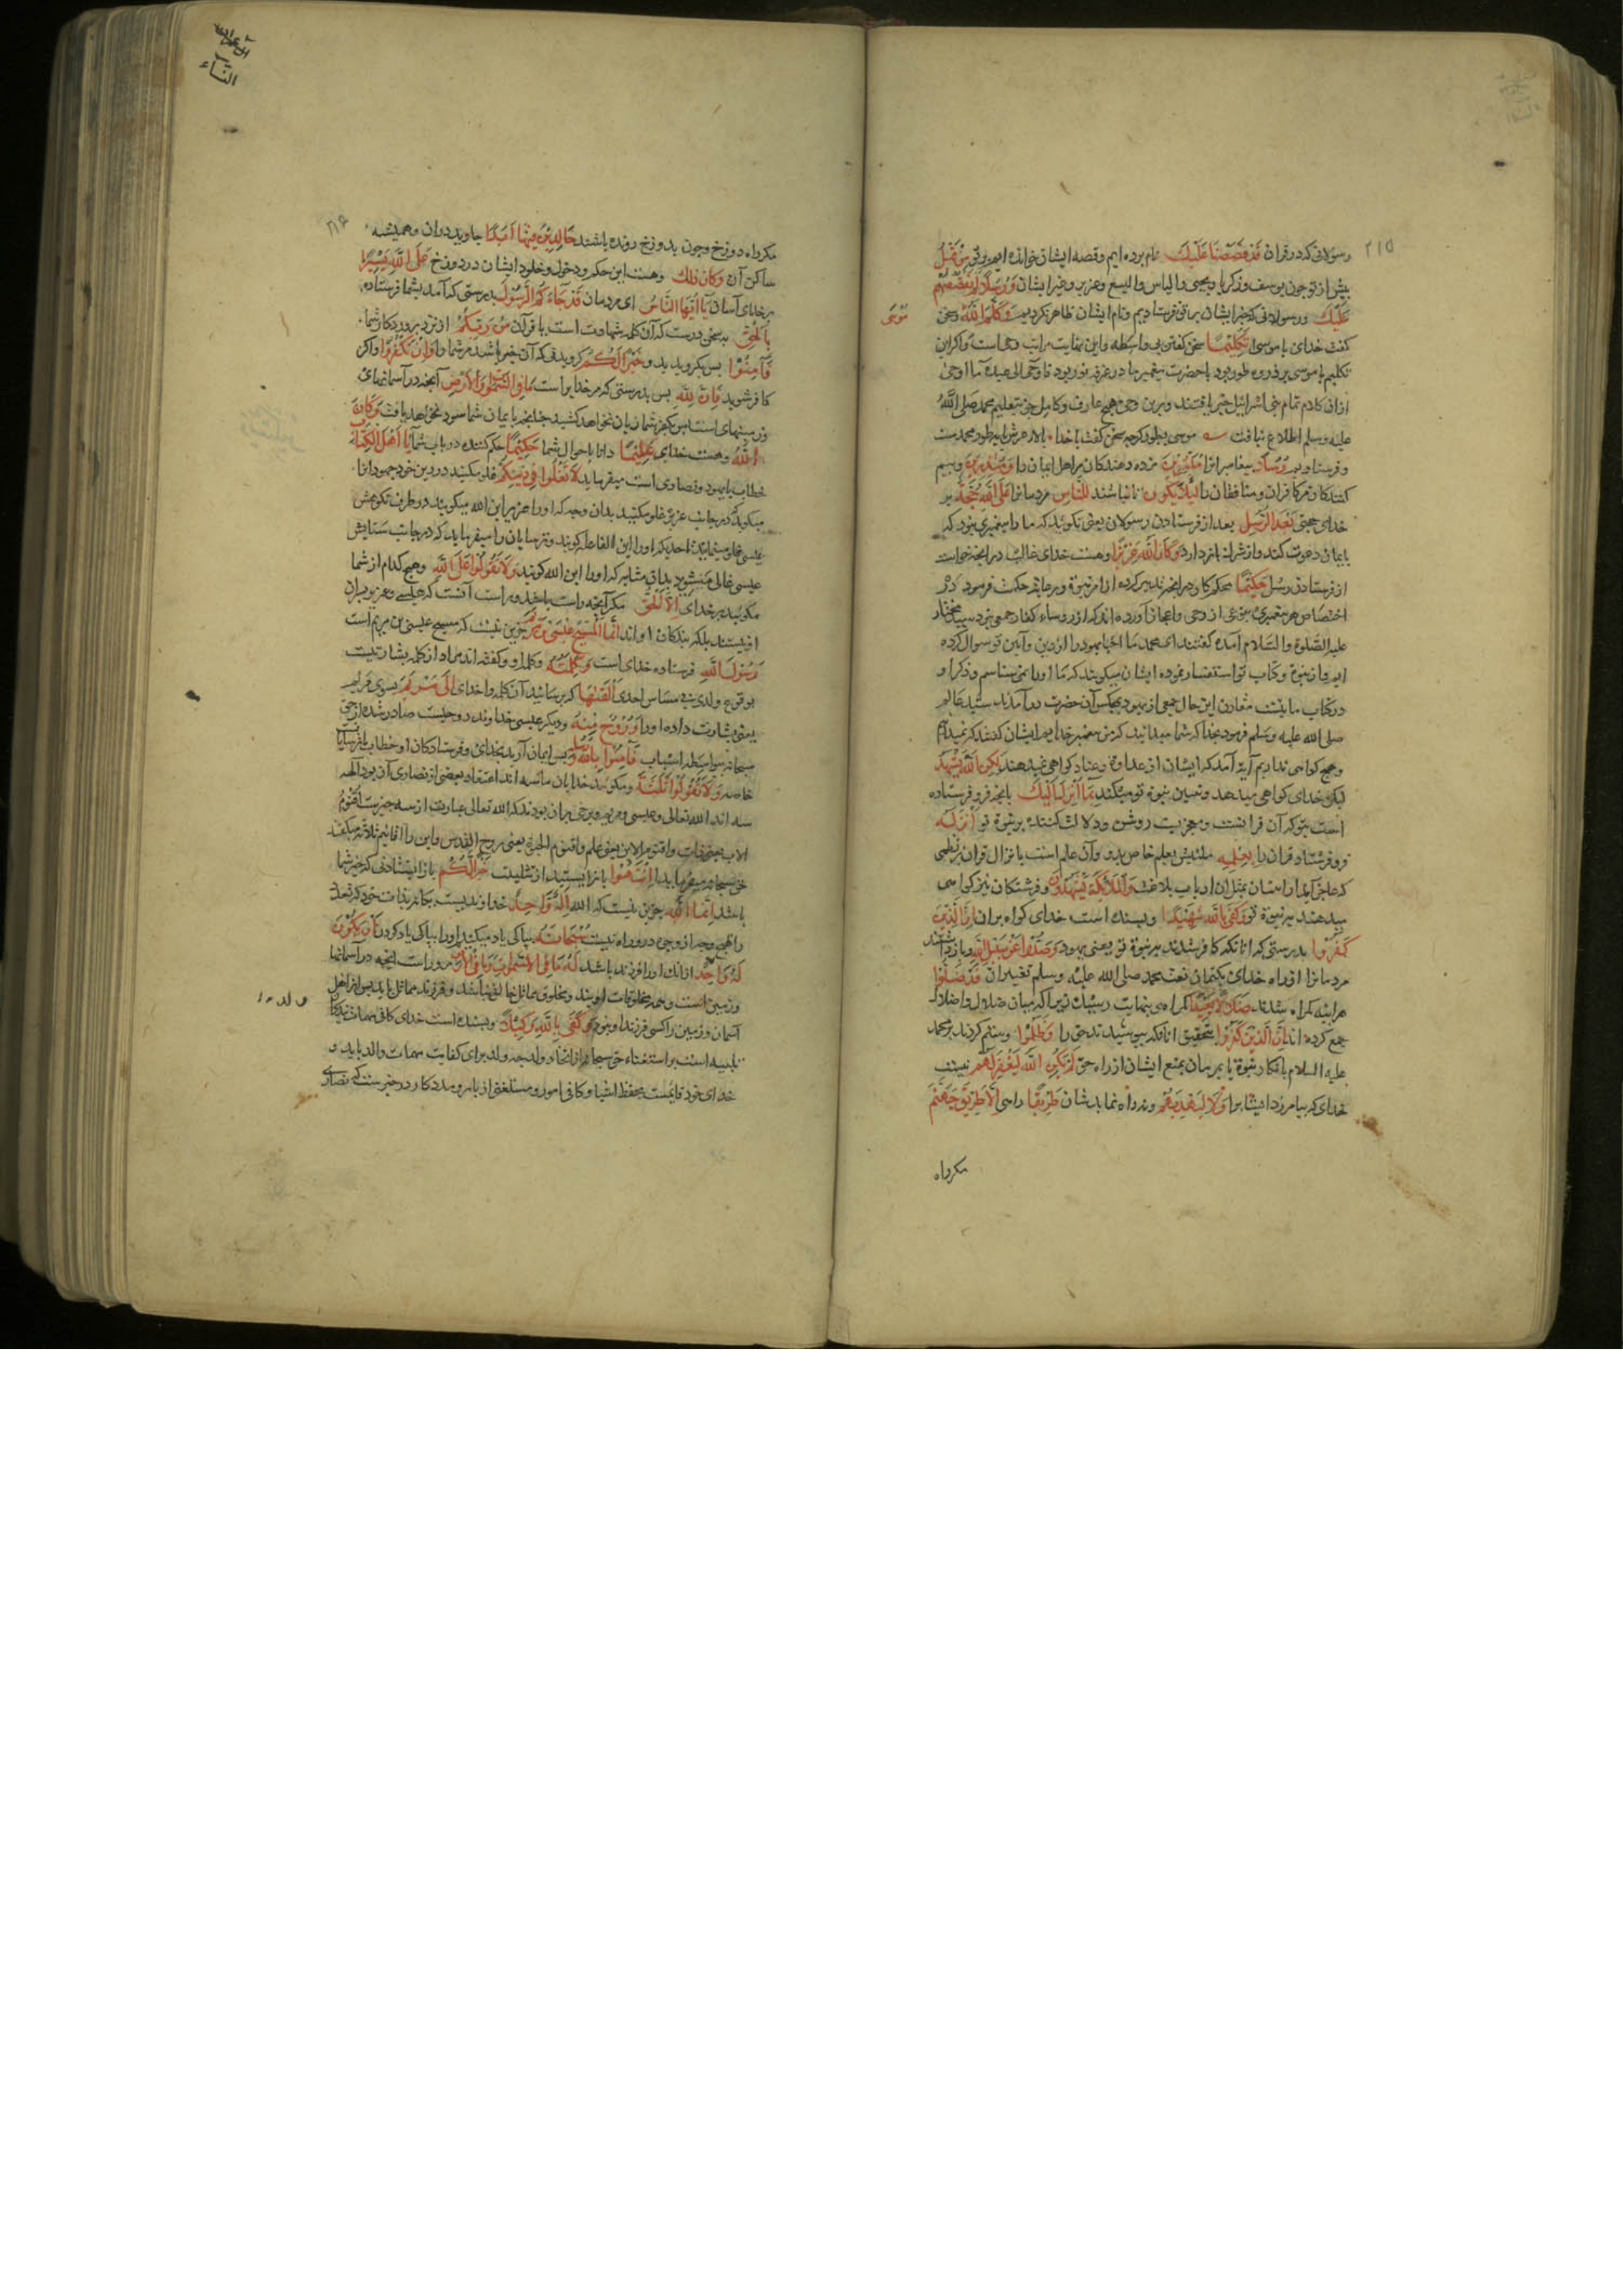 رسولانی که در قرآن قَدْ قَصَصْنَا عَلَيْكَ نام برده ایم و قصه ایشان خوانده ایم بر تو مِنْ قَبْلُ
پیش از تو چون یوسف و زکریا و یحیی و الیاس و الیسع و عزیر و غیر ایشان وَرُسُلًا لَمْ نَقْصُصْهُمْ
عَلَيْكَ و رسولانی که خبر ایشان بر تو نفرستادیم و نام ایشان ظاهر نکردیم وَكَلَّمَ اللَّهُ و سخن
مُوسَى
کفت خدای با موسی تَكْلِيمًا سخن کفتن بی واسطه و این نهایت مراتب وحی است و اکر این
تکلیم با موسی بر ذروه طور بود با حضرت پیغمبر ما در غرفه نور بود فاوحی الی عبده ما اوحی
از ان کلام تمام بنی اسرائیل خبر یافتند و برین وحی هیچ عارف و کامل جز بتعلیم محمد صلی الله
علیه وسلم اطلاع نیافت موسی بطور کرچه سخن کفت با خدا بالای عرش طور محمدست
و فرستادیم رُسُلًا پیغامبرانرا مُبَشِّرِينَ مژده دهندکان مر اهل ایمان را وَمُنْذِرِينَ و بیم
کنندکان مر کافران و منافقان را لِئَلَّا يَكُونَ تا نباشد لِلنَّاسِ مردمانرا عَلَى اللَّهِ حُجَّةٌ بر
خدای حجتی بَعْدَ الرُّسُلِ بعد از فرستادن رسولان یعنی نکویند که ما را پیغمبری نبود که
بایمان دعوت کند و از شرک باز دارد وَكَانَ اللَّهُ عَزِيزًا و هست خدای غالب در انچه خواست
از فرستادن رسل حَكِيمًا محکم کار و هر انچه تدبیر کرده از امر نبوة و رعایة حکمت فرمود در
اختصاص هر پیغمبری بنوعی از وحی و اعجاز آورده اند که از رؤساء کفار جمعی نزد سید مختار
علیه الصلوة والسلام آمده کفتند ای محمد ما احبار یهود را از دین و آیین تو سوال کرده
ایم و از نبوة و کتاب تو استفسار نموده ایشان میکویند که ما او را نمی شناسیم و ذکر او
در کتاب ما نیست مقارن این حال جمعی از یهود بمجلس آن حضرت در آمدند سید عالم
صلی الله علیه وسلم فرمود بخدا که شما میدانید که من پیغمبر خدایم ایشان کفتند که نمیدانیم
و هیچ کواهی نداریم آیة آمد که ایشان از عداوة و عناد کواهی نمیدهند لَكِنِ اللَّهُ يَشْهَدُ
لیکن خدای کواهی میدهد و تعیین نبوة تو میکند بِمَا أَنْزَلَ إِلَيْكَ بانچه فرو فرستاده
است بتو که آن قرانست و معجزیست روشن و دلالت کننده بر نبوة تو أَنْزَلَهُ
فرو فرستاد قران را بِعِلْمِهِ ملتبس بعلم خاص بدو وآن علم است بانزال قران بر نظمی
که عاجز آیند از اتیان بمثل ان ارباب بلاغت وَالْمَلَائِكَةُ يَشْهَدُونَ و فرشتکان نیز کواهی
میدهند بر نبوة تو وَكَفَى بِاللَّهِ شَهِيدًا و بسنده است خدای کواه بر ان إِنَّ الَّذِينَ
كَفَرُوا بدرستی که انانکه کافر شدند بر نبوة تو یعنی یهود وَصَدُّوا عَنْ سَبِيلِ اللَّهِ و باز داشتند
مردمانرا از راه خدای بکتمان نعت محمد صلی الله علیه وسلم قَدْ ضَلُّوا
هر اینه کمراه شدند ضَلَالًا بَعِيدًا کمراهی بنهایت رسیده زیرا که میان ضلال و اضلال
جمع کرده اند إِنَّ الَّذِينَ كَفَرُوا بتحقیق انانکه بپوشیدند حق را وَظَلَمُوا و ستم کردند بر محمد
علیه السلام بانکار نبوة یا بر مردمان بمنع ایشان از راه حق لَمْ يَكُنِ اللَّهُ لِيَغْفِرَ لَهُمْ نیست
خدای که بیامرزد ایشانرا وَلَا لِيَهْدِيَهُمْ و نه راه نماید شان طَرِيقًا راهی إِلَّا طَرِيقَ جَهَنَّمَ
مکر راه
۲۱۵
آل عمران
النساء
مکر راه دوزخ و چون بدوزخ رونده باشند خَالِدِينَ فِيهَا أَبَدًا جاوید در ان و همیشه
ساکن آن وَكَانَ ذَلِكَ و هست این حکم و دخول و خلود ایشان در دوزخ عَلَى اللَّهِ يَسِيرًا
بر خدای آسان يَا أَيُّهَا النَّاسُ ای مردمان قَدْ جَاءَكُمُ الرَّسُولُ بدرستی که آمد بشما فرستاده
بِالْحَقِّ بسخن درست که آن کلمه شهادت است یا قران مِنْ رَبِّكُمْ از نزد پروردکار شما
فَآمِنُوا پس بکروید بدو خَيْرًا لَكُمْ کرویدنی که آن بهتر باشد مر شما را وَإِنْ تَكْفُرُوا و اکر
کافر شوید فَإِنَّ لِلَّهِ پس بدرستی که مر خدایراست مَا فِي السَّمَوَاتِ وَالْأَرْضِ آنچه در آسمانهای
و زمینهای است پس بکفر شما زیان نخواهد کشید چنانچه بایمان شما سود نخواهد یافت وَكَانَ
اللَّهُ و هست خدای عَلِيمًا دانا باحوال شما حَكِيمًا حکم کننده در باب شما يَا أَهْلَ الْكِتَابِ
خطاب با یهود و نصاری است میفرماید لَا تَغْلُوا فِي دِينِكُمْ غلو مکنید در دین خود جهودانرا
میکوید که در جانب عزیر غلو مکنید بدان وجه که او را عزیر ابن الله میکویند و در طرف نکوهش
عیسی غالی منشوید بدان مثابه که او را ابن الله کویند وَلَا تَقُولُوا عَلَى اللَّهِ و هیچ کدام از شما
مکویید بر خدای إِلَّا الْحَقَّ مکر آنچه راست باشد و راست آنست که عیسی و عزیر پسران
او نیستند بلکه بندکان اواند إِنَّمَا الْمَسِيحُ عِيسَى بْنُ مَرْيَمَ جزین نیست که مسیح عیسی بن مریم است
رَسُولُ اللَّهِ فرستاده خدای است وَكَلِمَتُهُ و کلمه او و کفته اند مراد از کلمه بشارتیست
بوقوع ولدی بی مساس احدی أَلْقَاهَا که برسانید آن کلمه را خدای إِلَى مَرْيَمَ بسوی مریم
یعنی بشارت داده او را وَرُوحٌ مِنْهُ و دیکر عیسی خداوند روحیست صادر شده از حق
سبحانه بیواسطه اسباب فَآمِنُوا بِاللَّهِ وَرُسُلِهِ پس ایمان آرید بخدای و فرستادکان او خطاب با ترسایانست
خاصه وَلَا تَقُولُوا ثَلَاثَةٌ و مکویید خدایان ما سه اند اعتقاد بعضی از نصاری آن بود آلهه
سه اند الله تعالی و عیسی و مریم و برخی بران بودند که الله تعالی عبارت از سه چیزست اقنوم
الاب یعنی ذات و اقنوم الابن یعنی علم و اقنوم الحیوة یعنی روح القدس و این را اقانیم ثلاثه میکفتند
حق سبحانه میفرماید انْتَهُوا باز ایستید از تثلیث خَيْرًا لَكُمْ باز ایستادنی که خیر شما
باشد إِنَّمَا اللَّهُ جزین نیست که الله إِلَهٌ وَاحِدٌ خداوندیست یکانه بذات خود که تعدد
را بهیچ وجه از وجوه درو راه نیست سُبْحَانَهُ بپاکی یاد میکنم او را بپاکی یاد کردن أَنْ يَكُونَ
لَهُ وَلَدٌ از انکه او را فرزند باشد لَهُ مَا فِي السَّمَوَاتِ وَمَا فِي الْأَرْضِ مر اوراست انچه در آسمانها
و زمین است و همه مخلوقات اویند و مخلوق مماثل خالق نباشد و فرزند مماثل باید پس از اهل
آسمان و زمین را کسی فرزند او نبود وَكَفَى بِاللَّهِ وَكِيلًا و بسنده است خدای کافی مهمات بندکان
تنبیه است بر استغناء حق سبحانه از اتخاذ ولد چه ولد برای کفایت مهمات والد باید و
خدای خود قایمست بحفظ اشیا و کافی امور و مستغنی از یار و مددکار در خبرست که نصاری
ولد